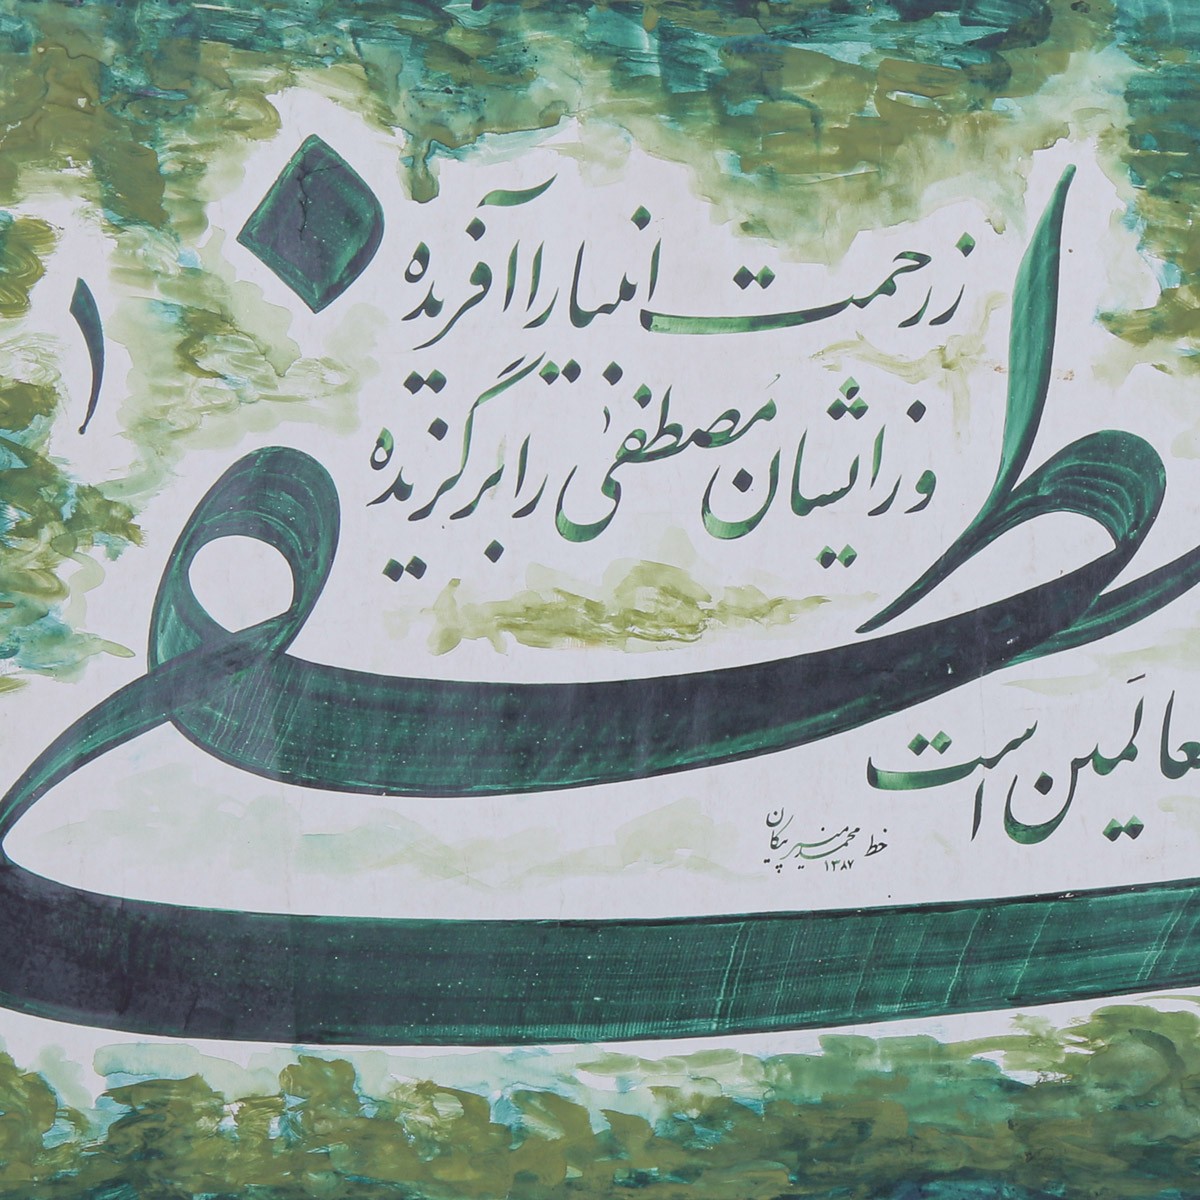 ز رحمت انبیا را آفریده
وز ایشان مُصطفی را برگزیده
طفی
عالَمین است
خط محمد منیر پیکان
۱۳۸۷